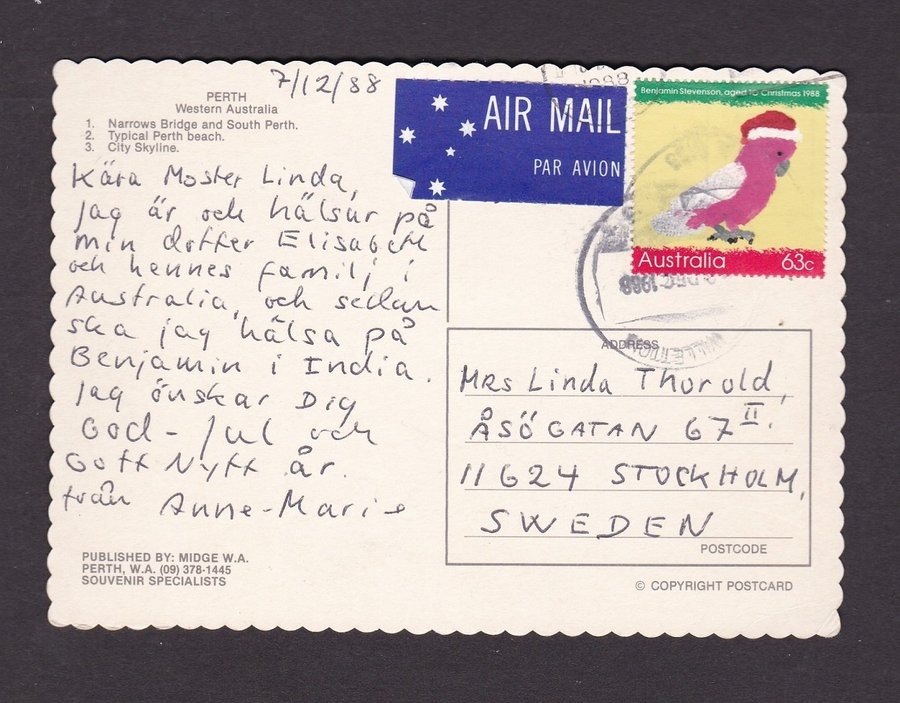 7/12/88
PERTH
Western Australia
1. Narrows Bridge and South Perth.
2. Typical Perth beach.
3. City Skyline.
AIR MAIL
PAR AVION
1988
Benjamin Stevenson, aged 10 Christmas 1988
Australia 63c
DEC 1988
Kära Moster Linda,
Jag är och hälsar på
min dotter Elisabeth
och hennes familj i
Australia, och sedan
ska jag hälsa på
Benjamin i India.
Jag önskar Dig
God - Jul och
Gott Nytt år.
från Anne-Marie
ADDRESS
Mrs Linda Thorold,
ÅSÖGATAN 67 II.
11624 STOCKHOLM,
SWEDEN
POSTCODE
PUBLISHED BY: MIDGE W.A.
PERTH, W.A. (09) 378-1445
SOUVENIR SPECIALISTS
© COPYRIGHT POSTCARD